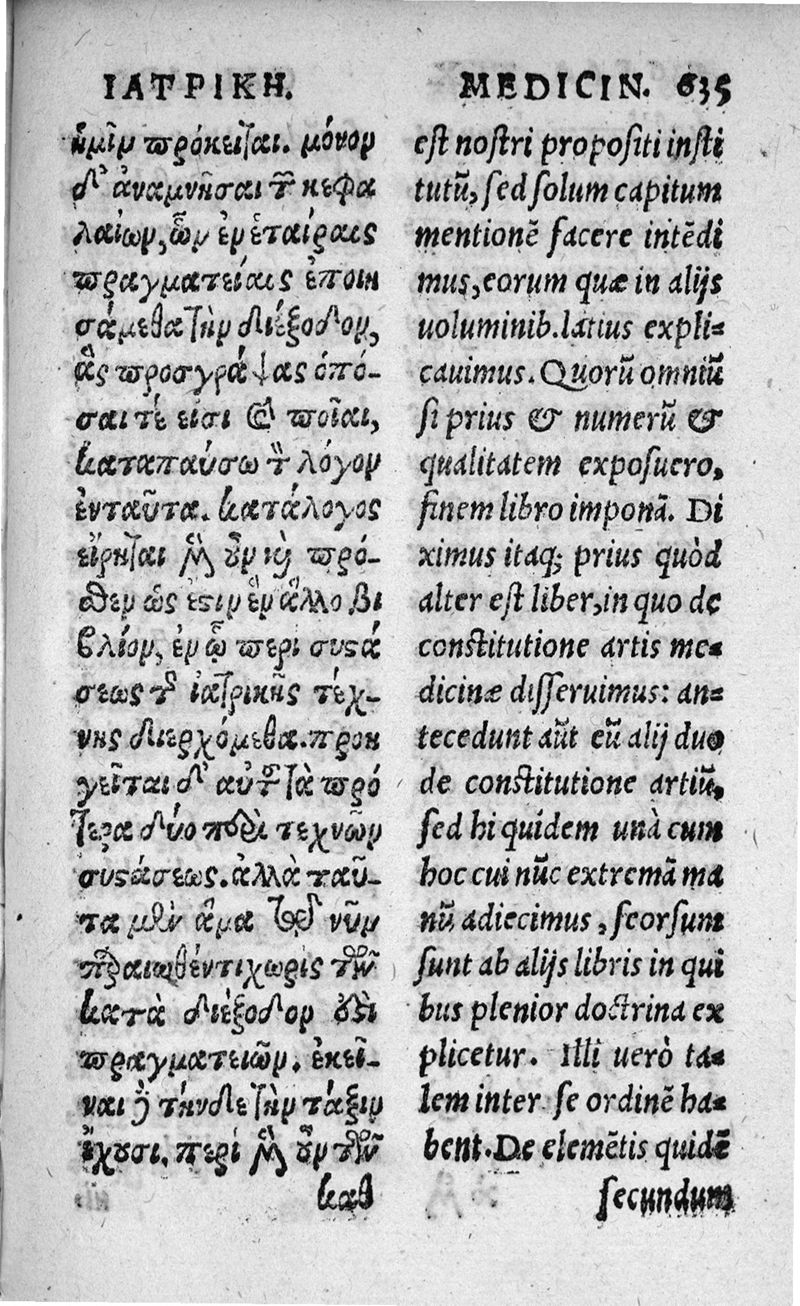 ΙΑΤΡΙΚΗ.
ἡμῖν πρόκειται. μόνον
δ' ἀναμνῆσαι τῶν κεφα
λαίων, ὧν ἐν ἑταίραις
πραγματείαις ἐποιη
σάμεθα τὴν διέξοδον,
ἃς προσγράψας ὁπό-
σαι τέ εἰσι καὶ ποῖαι,
καταπαύσω τὸν λόγον
ἐνταῦτα. κατάλογος
εἴρηται μὲν οὖν καὶ πρό-
σθεν ὡς ἔστιν ἓν ἄλλο βι
βλίον, ἐν ᾧ περὶ συστά
σεως τῆς ἰατρικῆς τέχ-
νης διερχόμεθα. προη
γεῖται δ' αὐτοῦ τὰ πρό
τερα δύο περὶ τεχνῶν
συστάσεως. ἀλλὰ ταῦ-
τα μὲν ἅμα τῷ νῦν
χωρὶς τῶν
κατὰ διέξοδον ἐστὶ
πραγματειῶν. ἐκεῖ-
ναι δὲ τήνδε τὴν τάξιν
ἔχουσι, περὶ μὲν οὖν τῶν
καθ
MEDICIN. 635
est nostri propositi insti
tutū, sed solum capitum
mentionē facere intēdi
mus, eorum quæ in alijs
uoluminib. latius expli-
cauimus. Quorū omniū
si prius & numerū &
qualitatem exposuero,
finem libro imponā. Di
ximus itaq; prius quòd
alter est liber, in quo de
constitutione artis me-
dicinæ disseruimus: an-
tecedunt aūt eū alij duo
de constitutione artiū,
sed hi quidem unà cum
hoc cui nūc extremā ma
nū adiecimus, seorsum
sunt ab alijs libris in qui
bus plenior doctrina ex
plicetur. Illi uerò ta-
lem inter se ordinē ha-
bent. De elemētis quidē
secundum